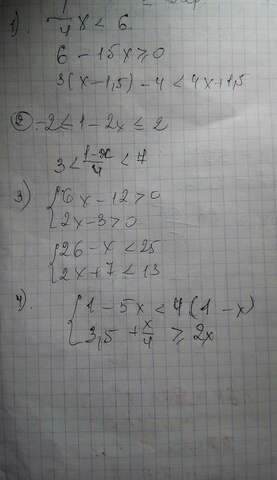 1). 1/4 x < 6.
6 - 15x ≥ 0
3(x - 1,5) - 4 < 4x + 1,5
2) -2 ≤ 1 - 2x ≤ 2
3 < (1-x)/4 < 7
3) { 6x - 12 > 0
2x - 3 > 0
{ 26 - x < 25
2x + 7 < 13
4). { 1 - 5x < 4(1 - x)
3,5 + x/4 ≥ 2x